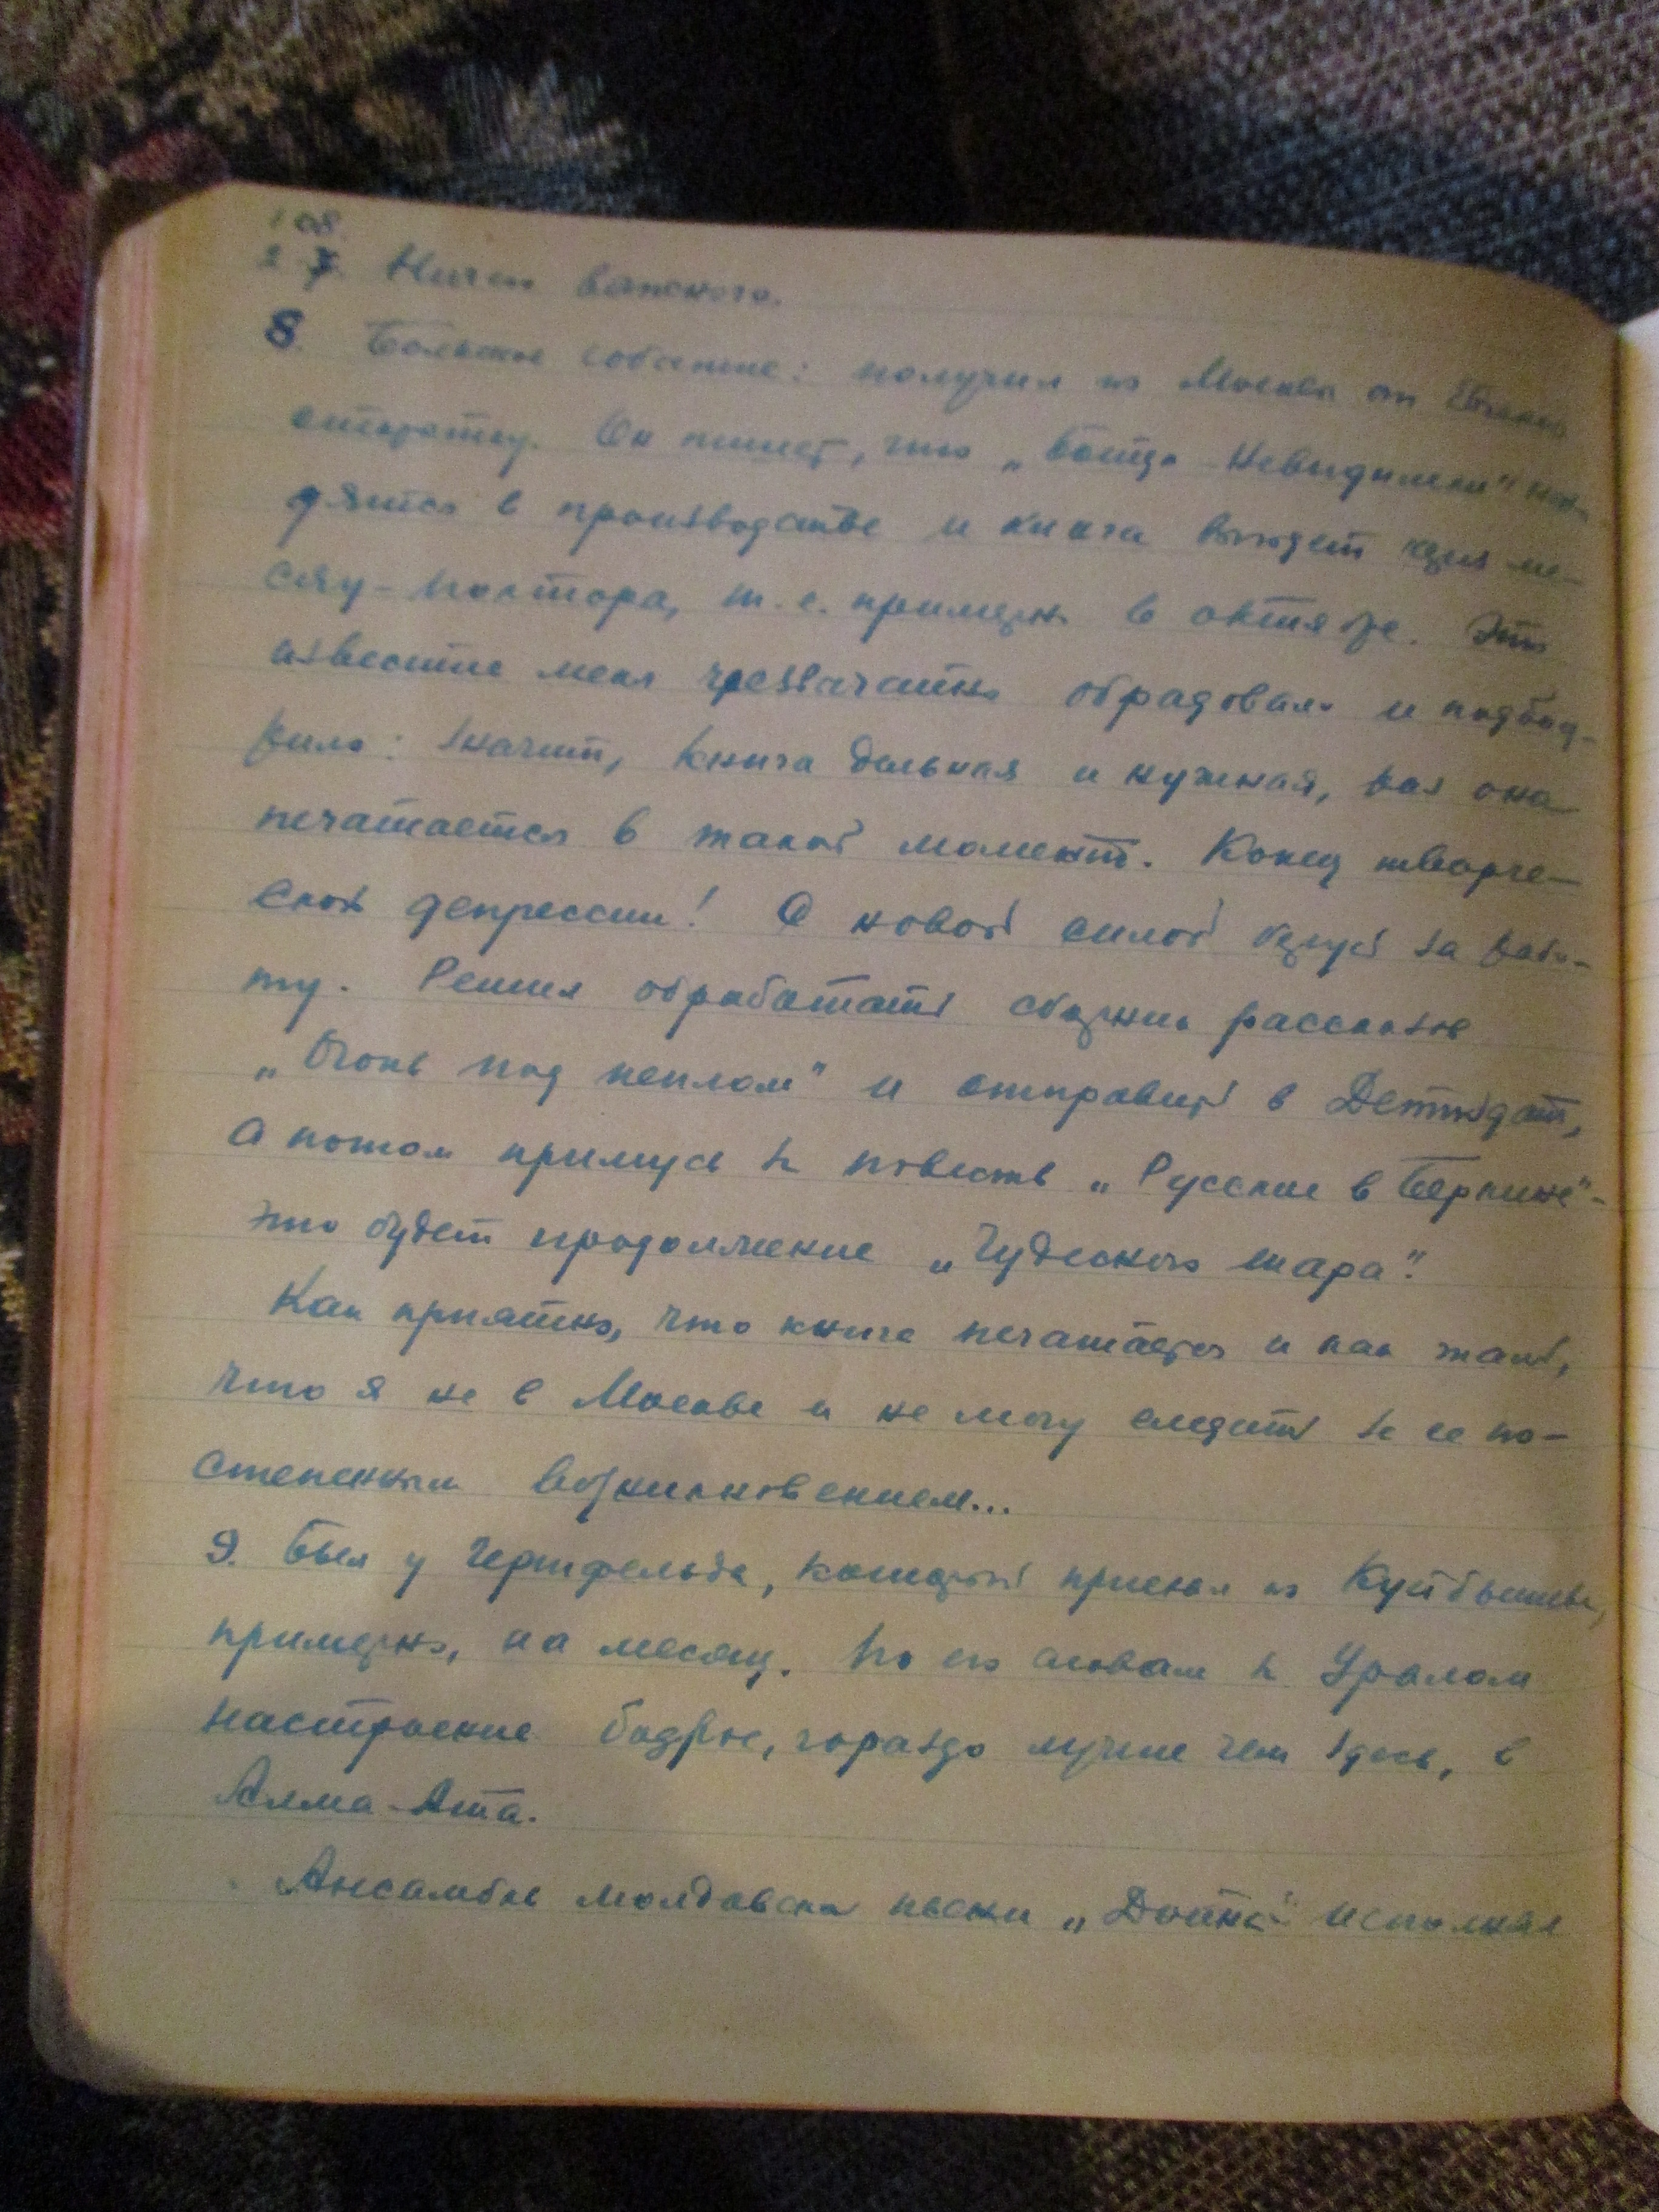 108.
2-7. Ничего важного.
8. Большое событие: получил из Москвы от
открытку. Он пишет, что „Бойцы-Невидимки" нахо-
дятся в производстве и книга выйдет через ме-
сяц-полтора, т.е. примерно в октябре. Это
известие меня чрезвычайно обрадовало и подбод-
рило: значит, книга дельная и нужная, раз она
печатается в такой момент. Конец творче-
ской депрессии! С новой силой берусь за рабо-
ту. Решил обработать сборник рассказов
„Огонь под пеплом" и отправить в Детиздат,
а потом примусь за повесть „Русские в Берлине"-
это будет продолжение „Чудесного шара".
Как приятно, что книга печатается и как жаль,
что я не в Москве и не могу следить за ее по-
степенным возникновением...
9. Был у Герцфельда, который приехал из Куйбышева,
примерно, на месяц. По его словам за Уралом
настроение бодрое, гораздо лучше чем здесь, в
Алма-Ата.
Ансамбль молдавской песни „Дойна" исполнял